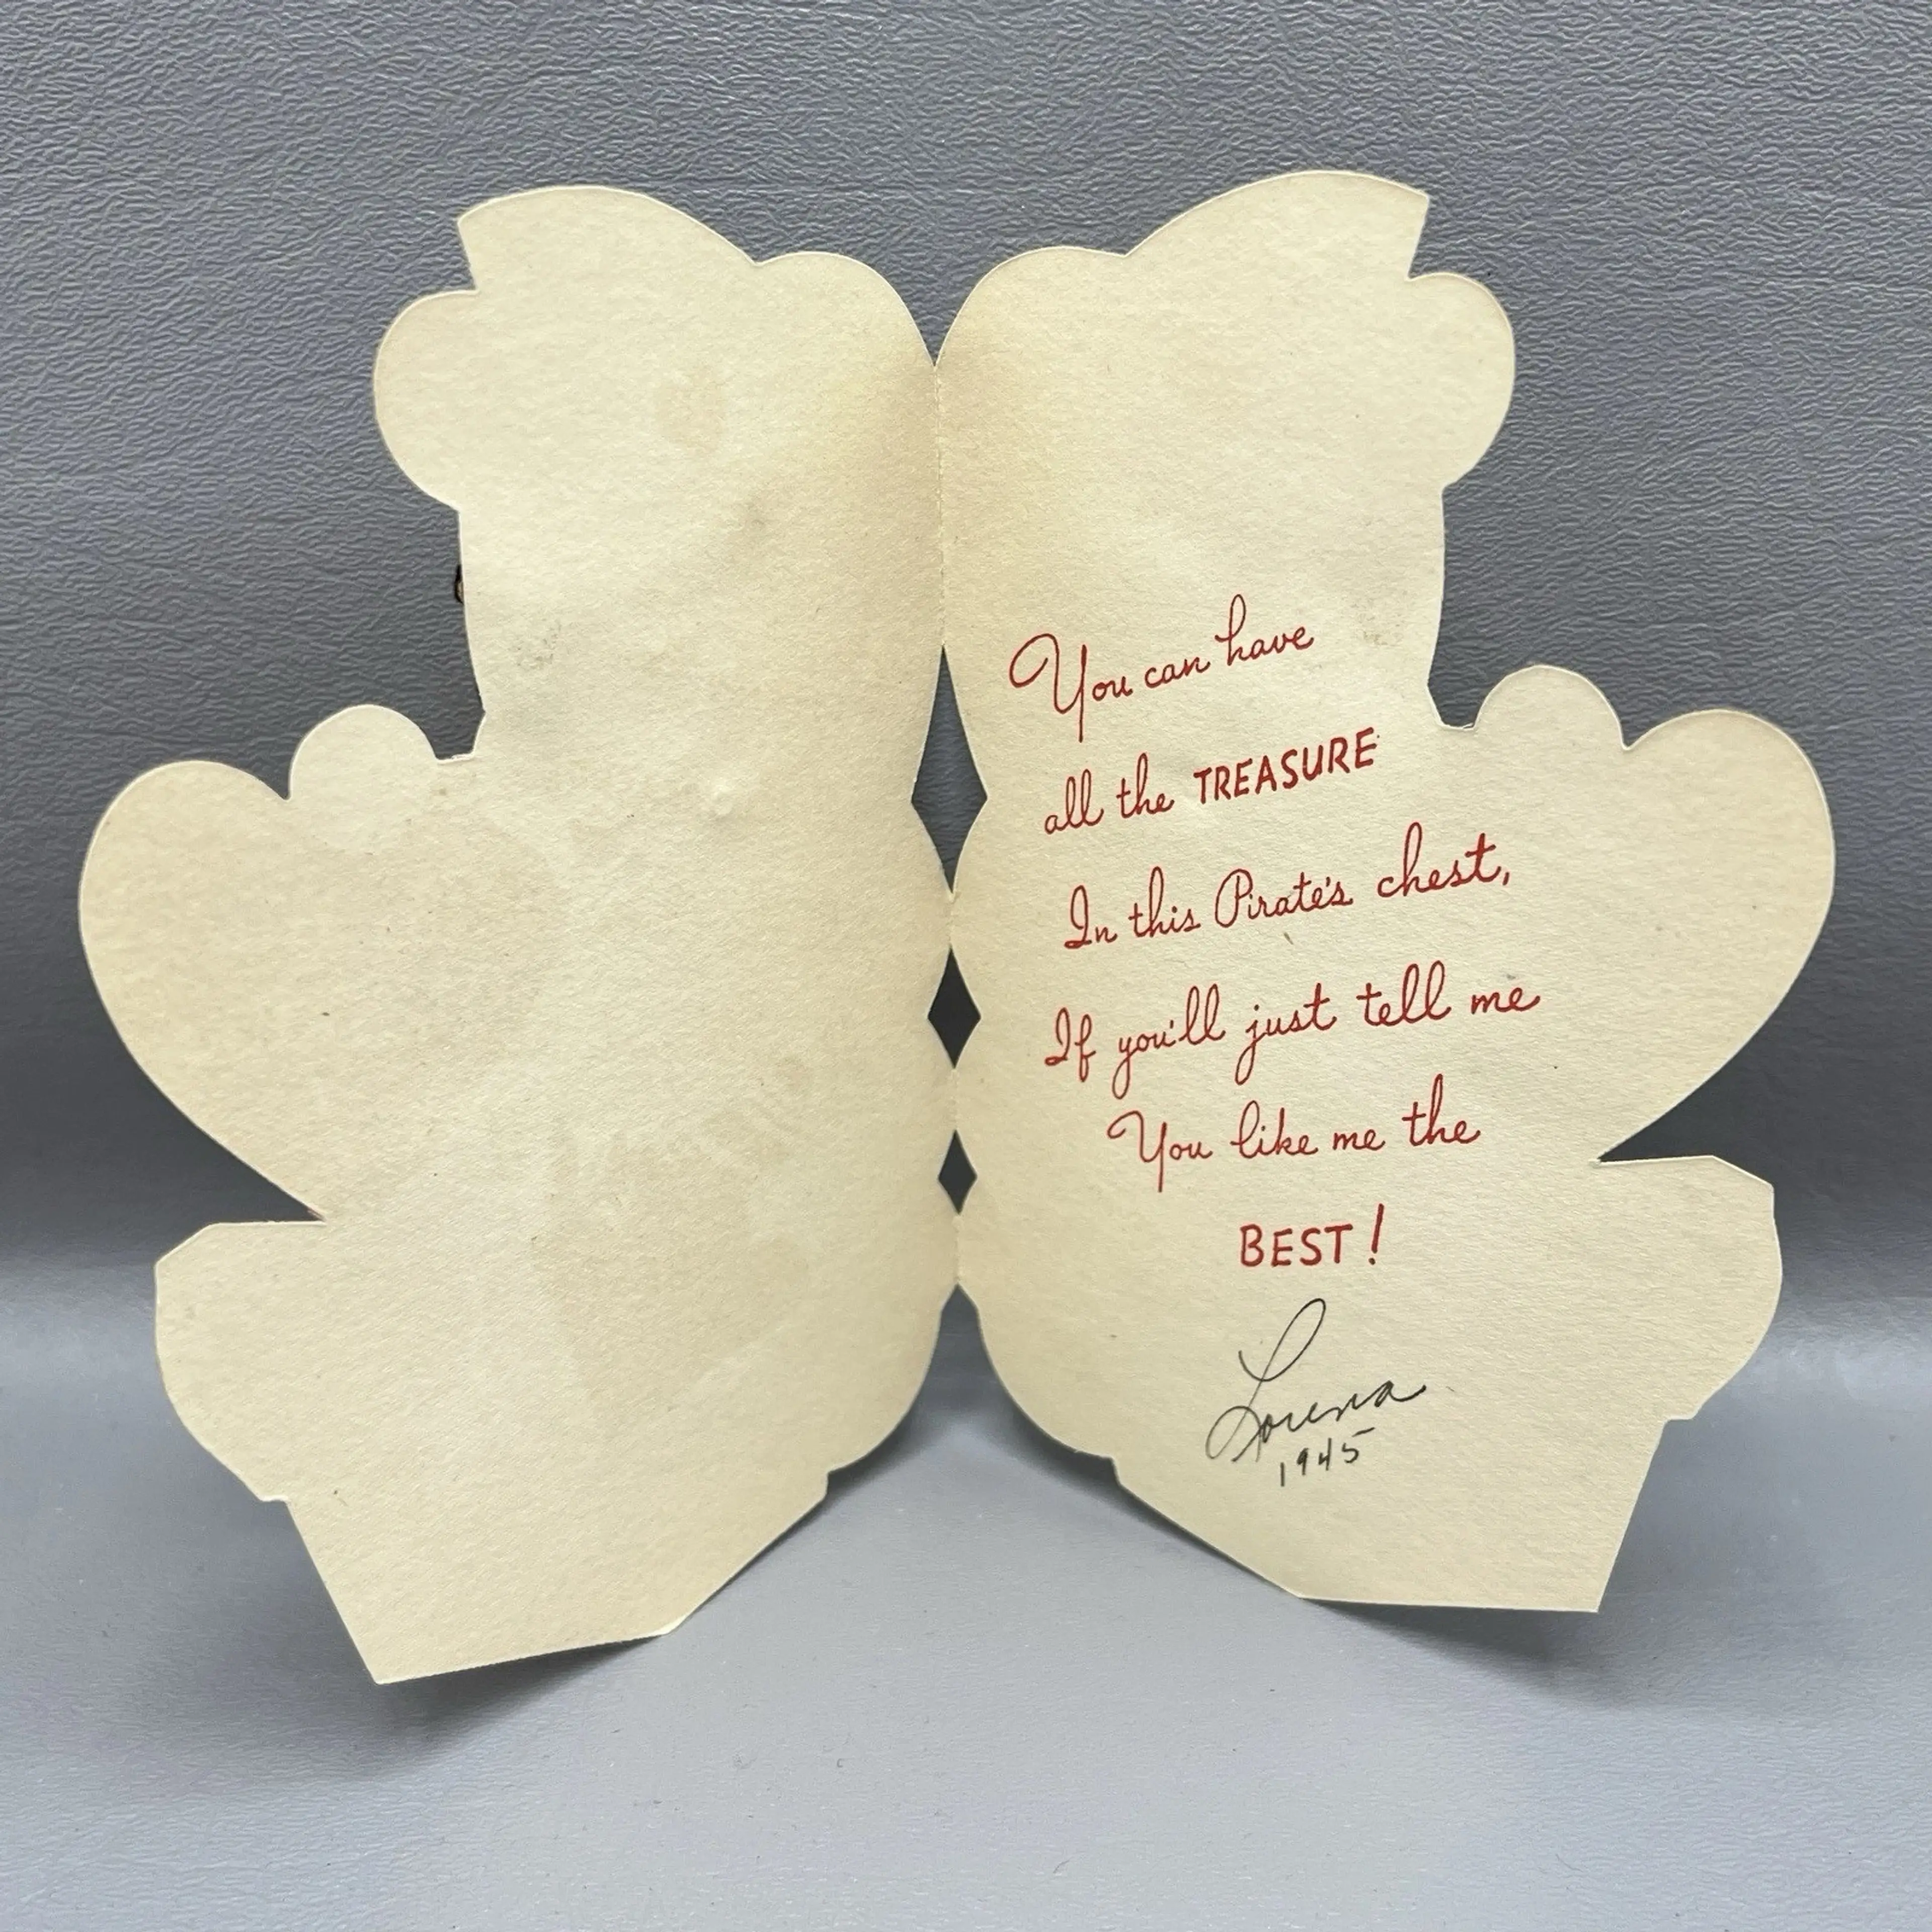 You can have
all the TREASURE
In this Pirate's chest,
If you'll just tell me
You like me the
BEST!
Lorena
1945